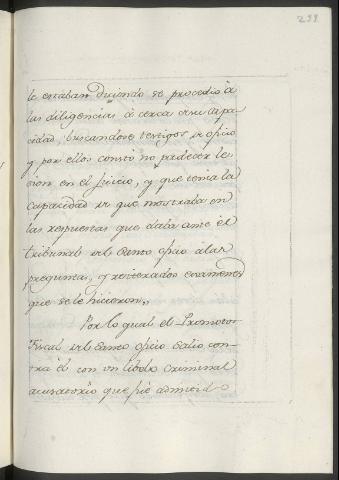 299
le estaban Diciendo se procedió á
las diligencias á cerca de su capa
cidad, buscandose testigos de oficio
y por ellos constó no padecer le
cion en el Juicio, y que tenia la
capacidad de que mostraba en
las respuestas que daba ante el
tribunal del Santo oficio á las
preguntas, y reiterados examenes
que se le hicieron,,
Por lo qual el Promotor
Fiscal del Santo oficio Salio con-
tra él con un libelo criminal
acusatorio que fué admitido